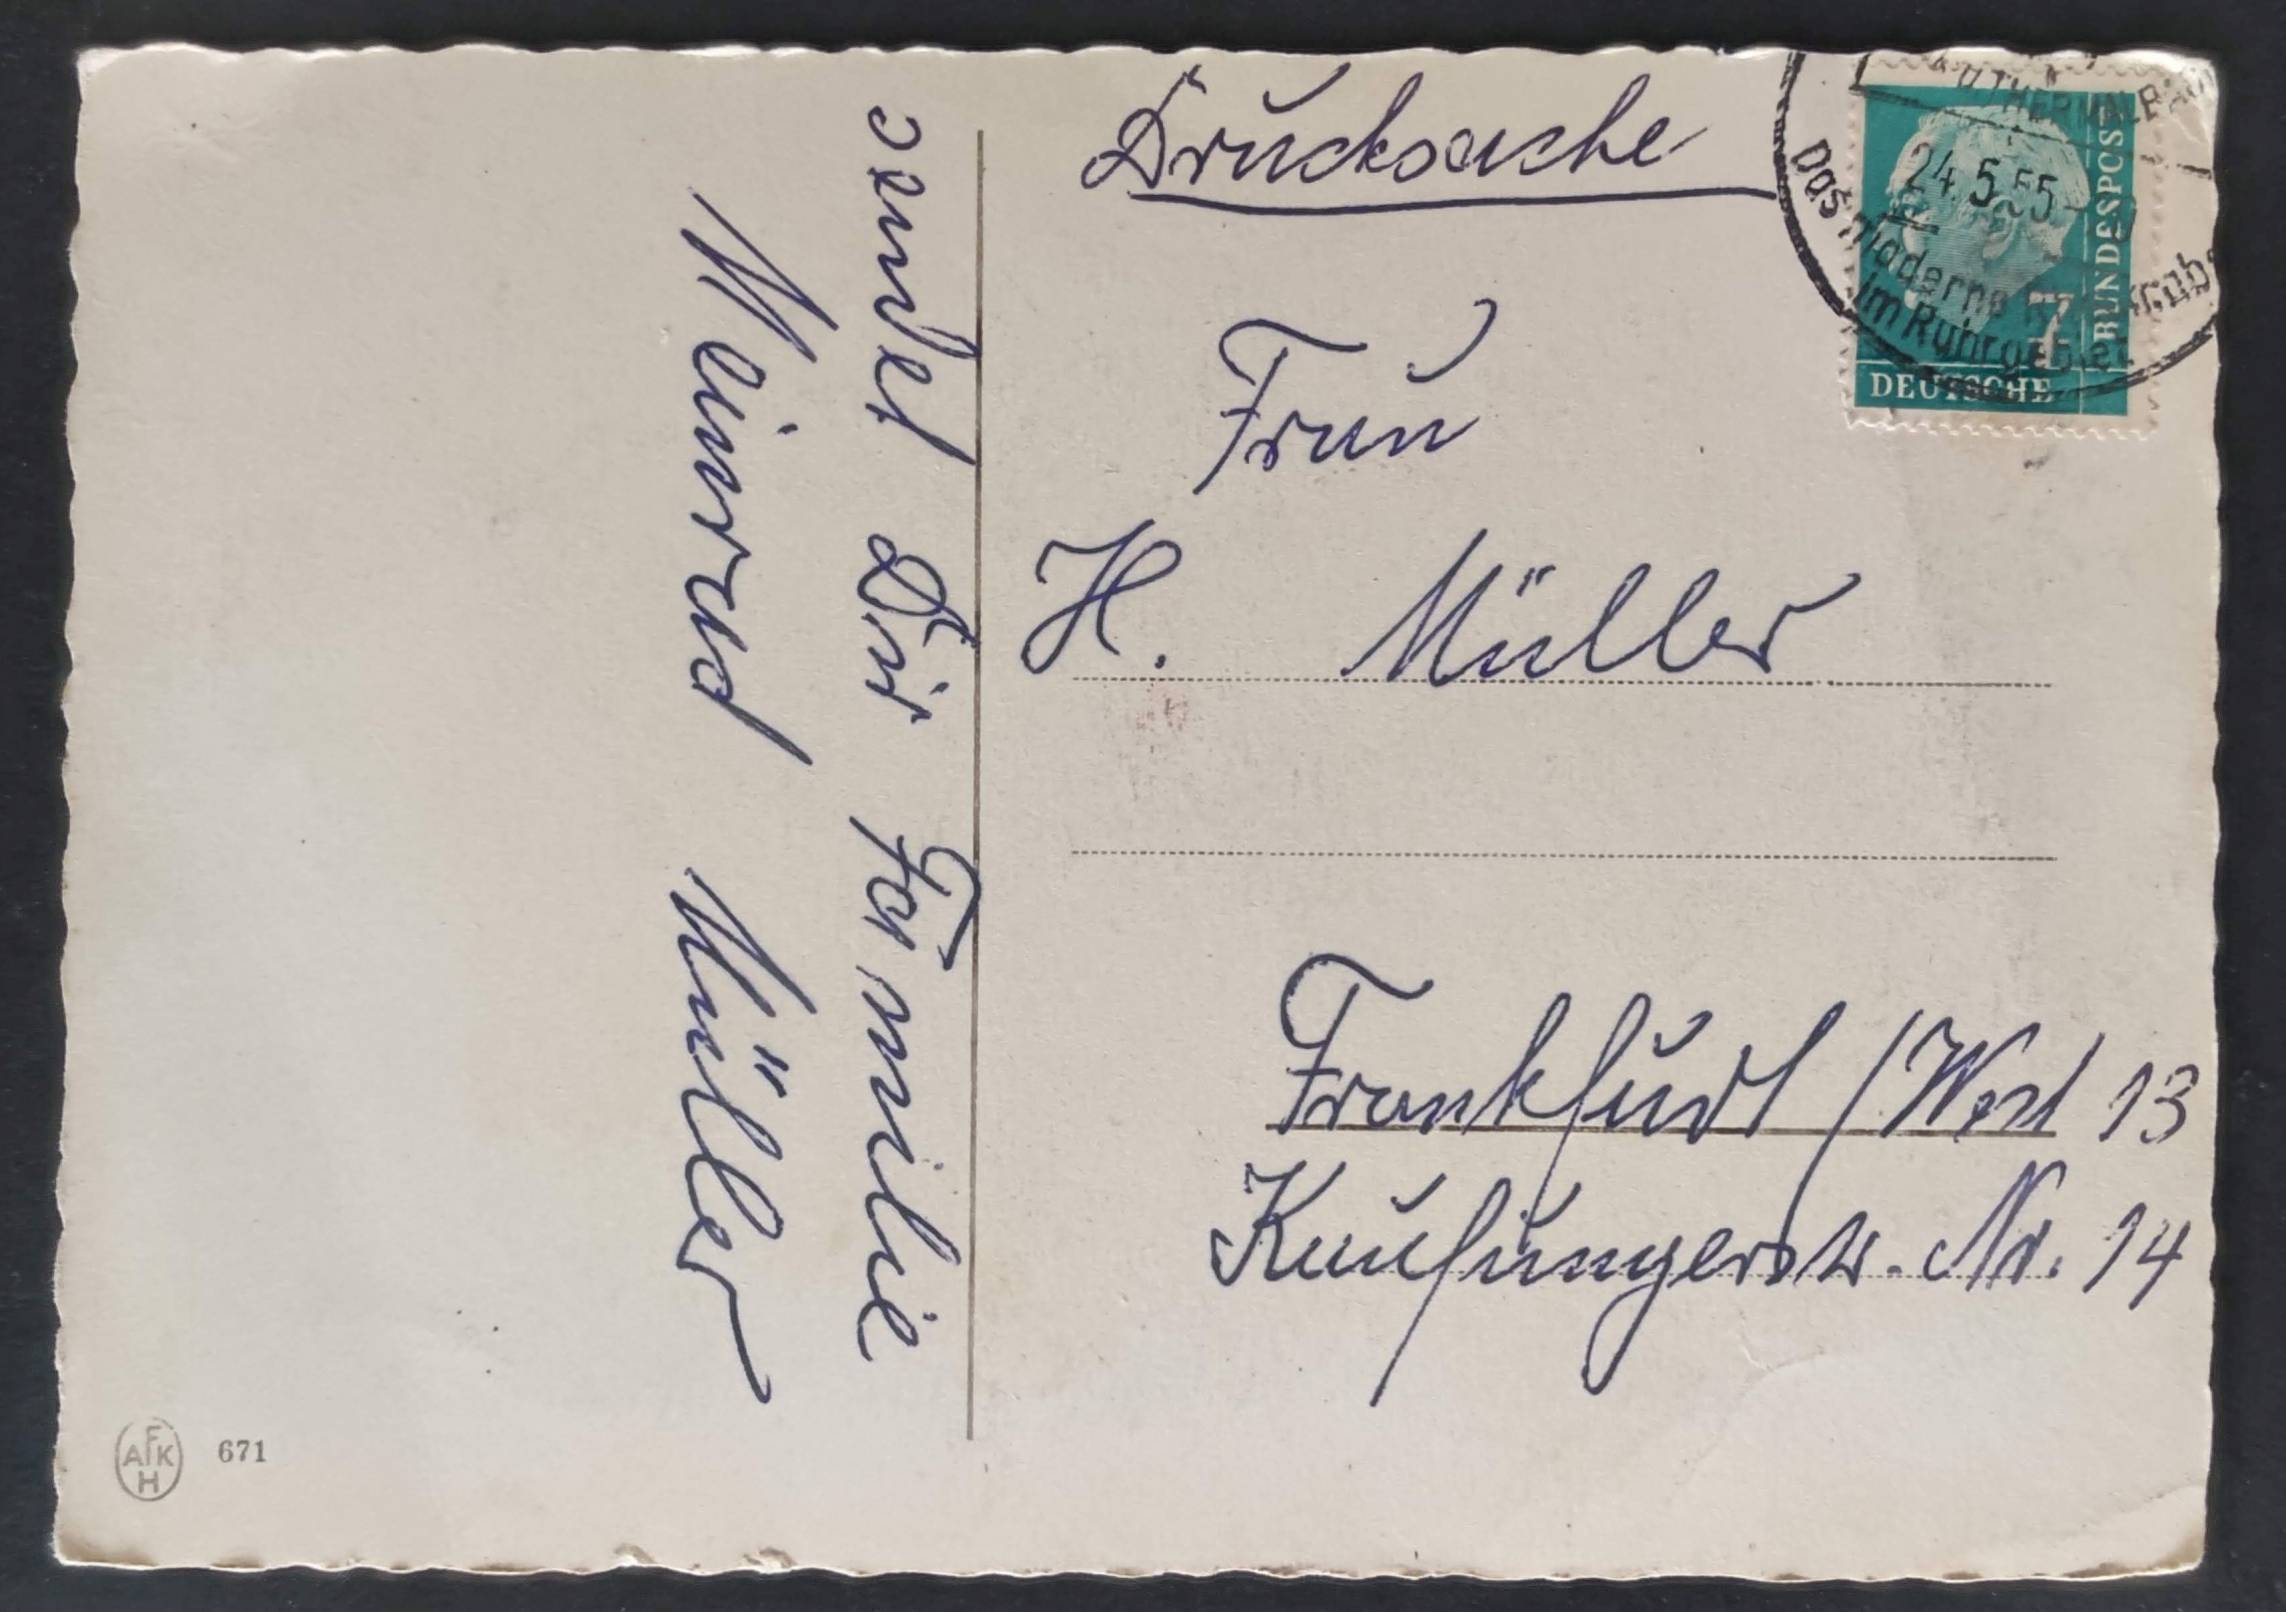 sendet Dir Familie
Meinrad Müller
Drucksache
THERMALBAD
24.5.55
Das moderne
im Ruhrgebiet
7
BUNDESPOST
DEUTSCHE
Frau
H. Müller
Frankfurt/West 13
Kaufungerstr. Nr. 14
AFKH 671